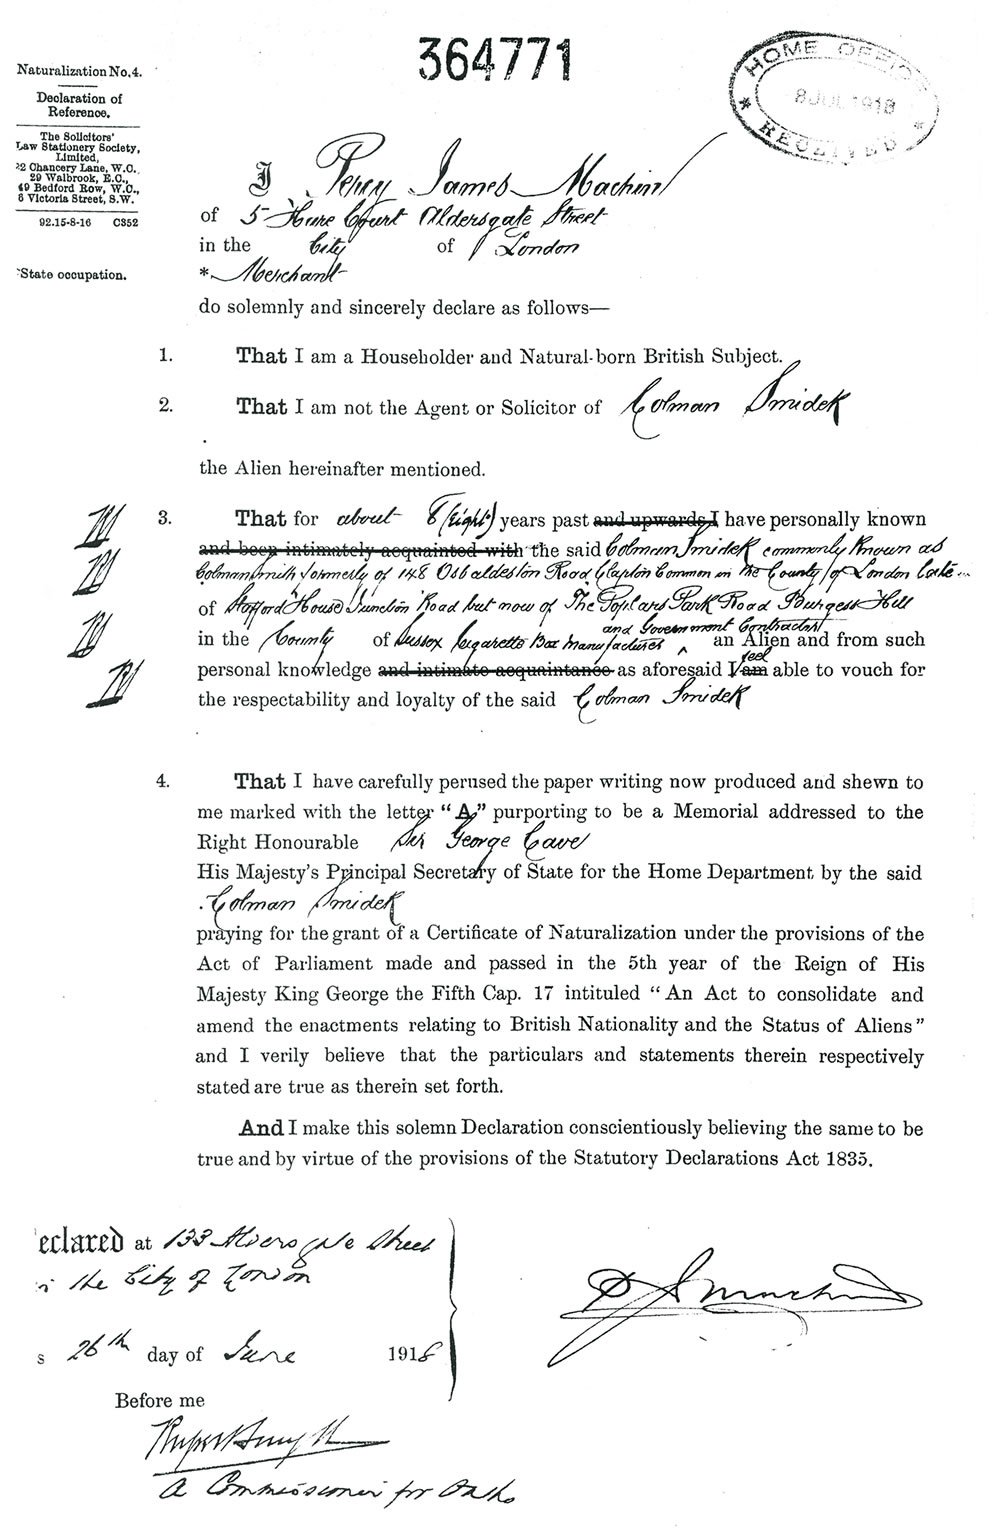 364771
HOME OFFICE
8 JUL 1918
RECEIVED
Naturalization No. 4.
Declaration of
Reference.
The Solicitors'
Law Stationery Society,
Limited,
22 Chancery Lane, W.C.,
29 Walbrook, E.C.,
49 Bedford Row, W.C.,
6 Victoria Street, S.W.
92.15-8-16 C352
*State occupation.
I Percy James Machin
of 5 Hare Court Aldersgate Street
in the City of London
* Merchant
do solemnly and sincerely declare as follows—
1. That I am a Householder and Natural-born British Subject.
2. That I am not the Agent or Solicitor of Colman Smidek
the Alien hereinafter mentioned.
3. That for about 8 (eight) years past and upwards I have personally known
and been intimately acquainted with the said Colman Smidek commonly known as
Colman Smith formerly of 148 Osbaldeston Road Clapton Common in the County of London late
of Stafford House Junction Road but now of The Poplars Park Road Burgess Hill
and Government Contractor
in the County of Sussex Cigarette Box Manufacturer ^ an Alien and from such
feel
personal knowledge and intimate acquaintance as aforesaid I am able to vouch for
the respectability and loyalty of the said Colman Smidek
4. That I have carefully perused the paper writing now produced and shewn to
me marked with the letter "A," purporting to be a Memorial addressed to the
Right Honourable Sir George Cave
His Majesty's Principal Secretary of State for the Home Department by the said
Colman Smidek
praying for the grant of a Certificate of Naturalization under the provisions of the
Act of Parliament made and passed in the 5th year of the Reign of His
Majesty King George the Fifth Cap. 17 intituled "An Act to consolidate and
amend the enactments relating to British Nationality and the Status of Aliens"
and I verily believe that the particulars and statements therein respectively
stated are true as therein set forth.
And I make this solemn Declaration conscientiously believing the same to be
true and by virtue of the provisions of the Statutory Declarations Act 1835.
eclared at 133 Aldersgate Street
in the City of London
s 26th day of June 1918
P J Machin
Before me
A Commissioner for Oaths